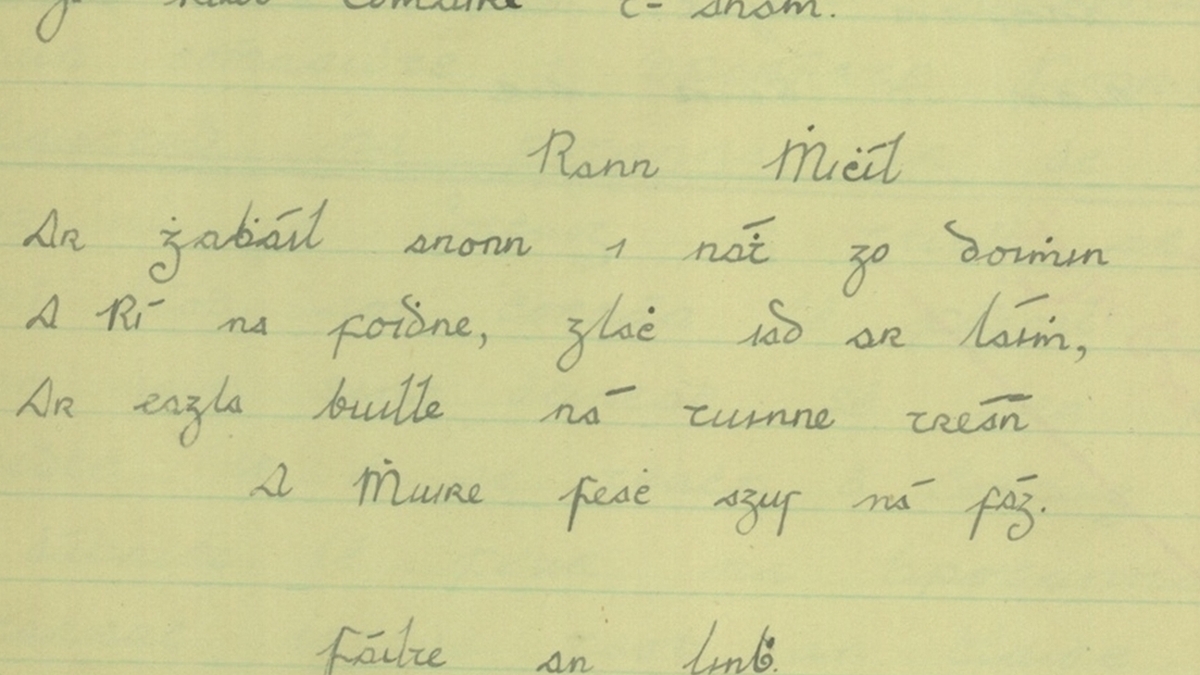 anam.
Rann Ṁiċíl
Ar ġaḃáil anonn i náṫ go doiṁin
A Rí na foiḋne, glaċ iad ar láiṁ,
Ar eagla buille ná tuinne treán
A Ṁuire feaċ agus ná fág.
Fáilte an linḃ.